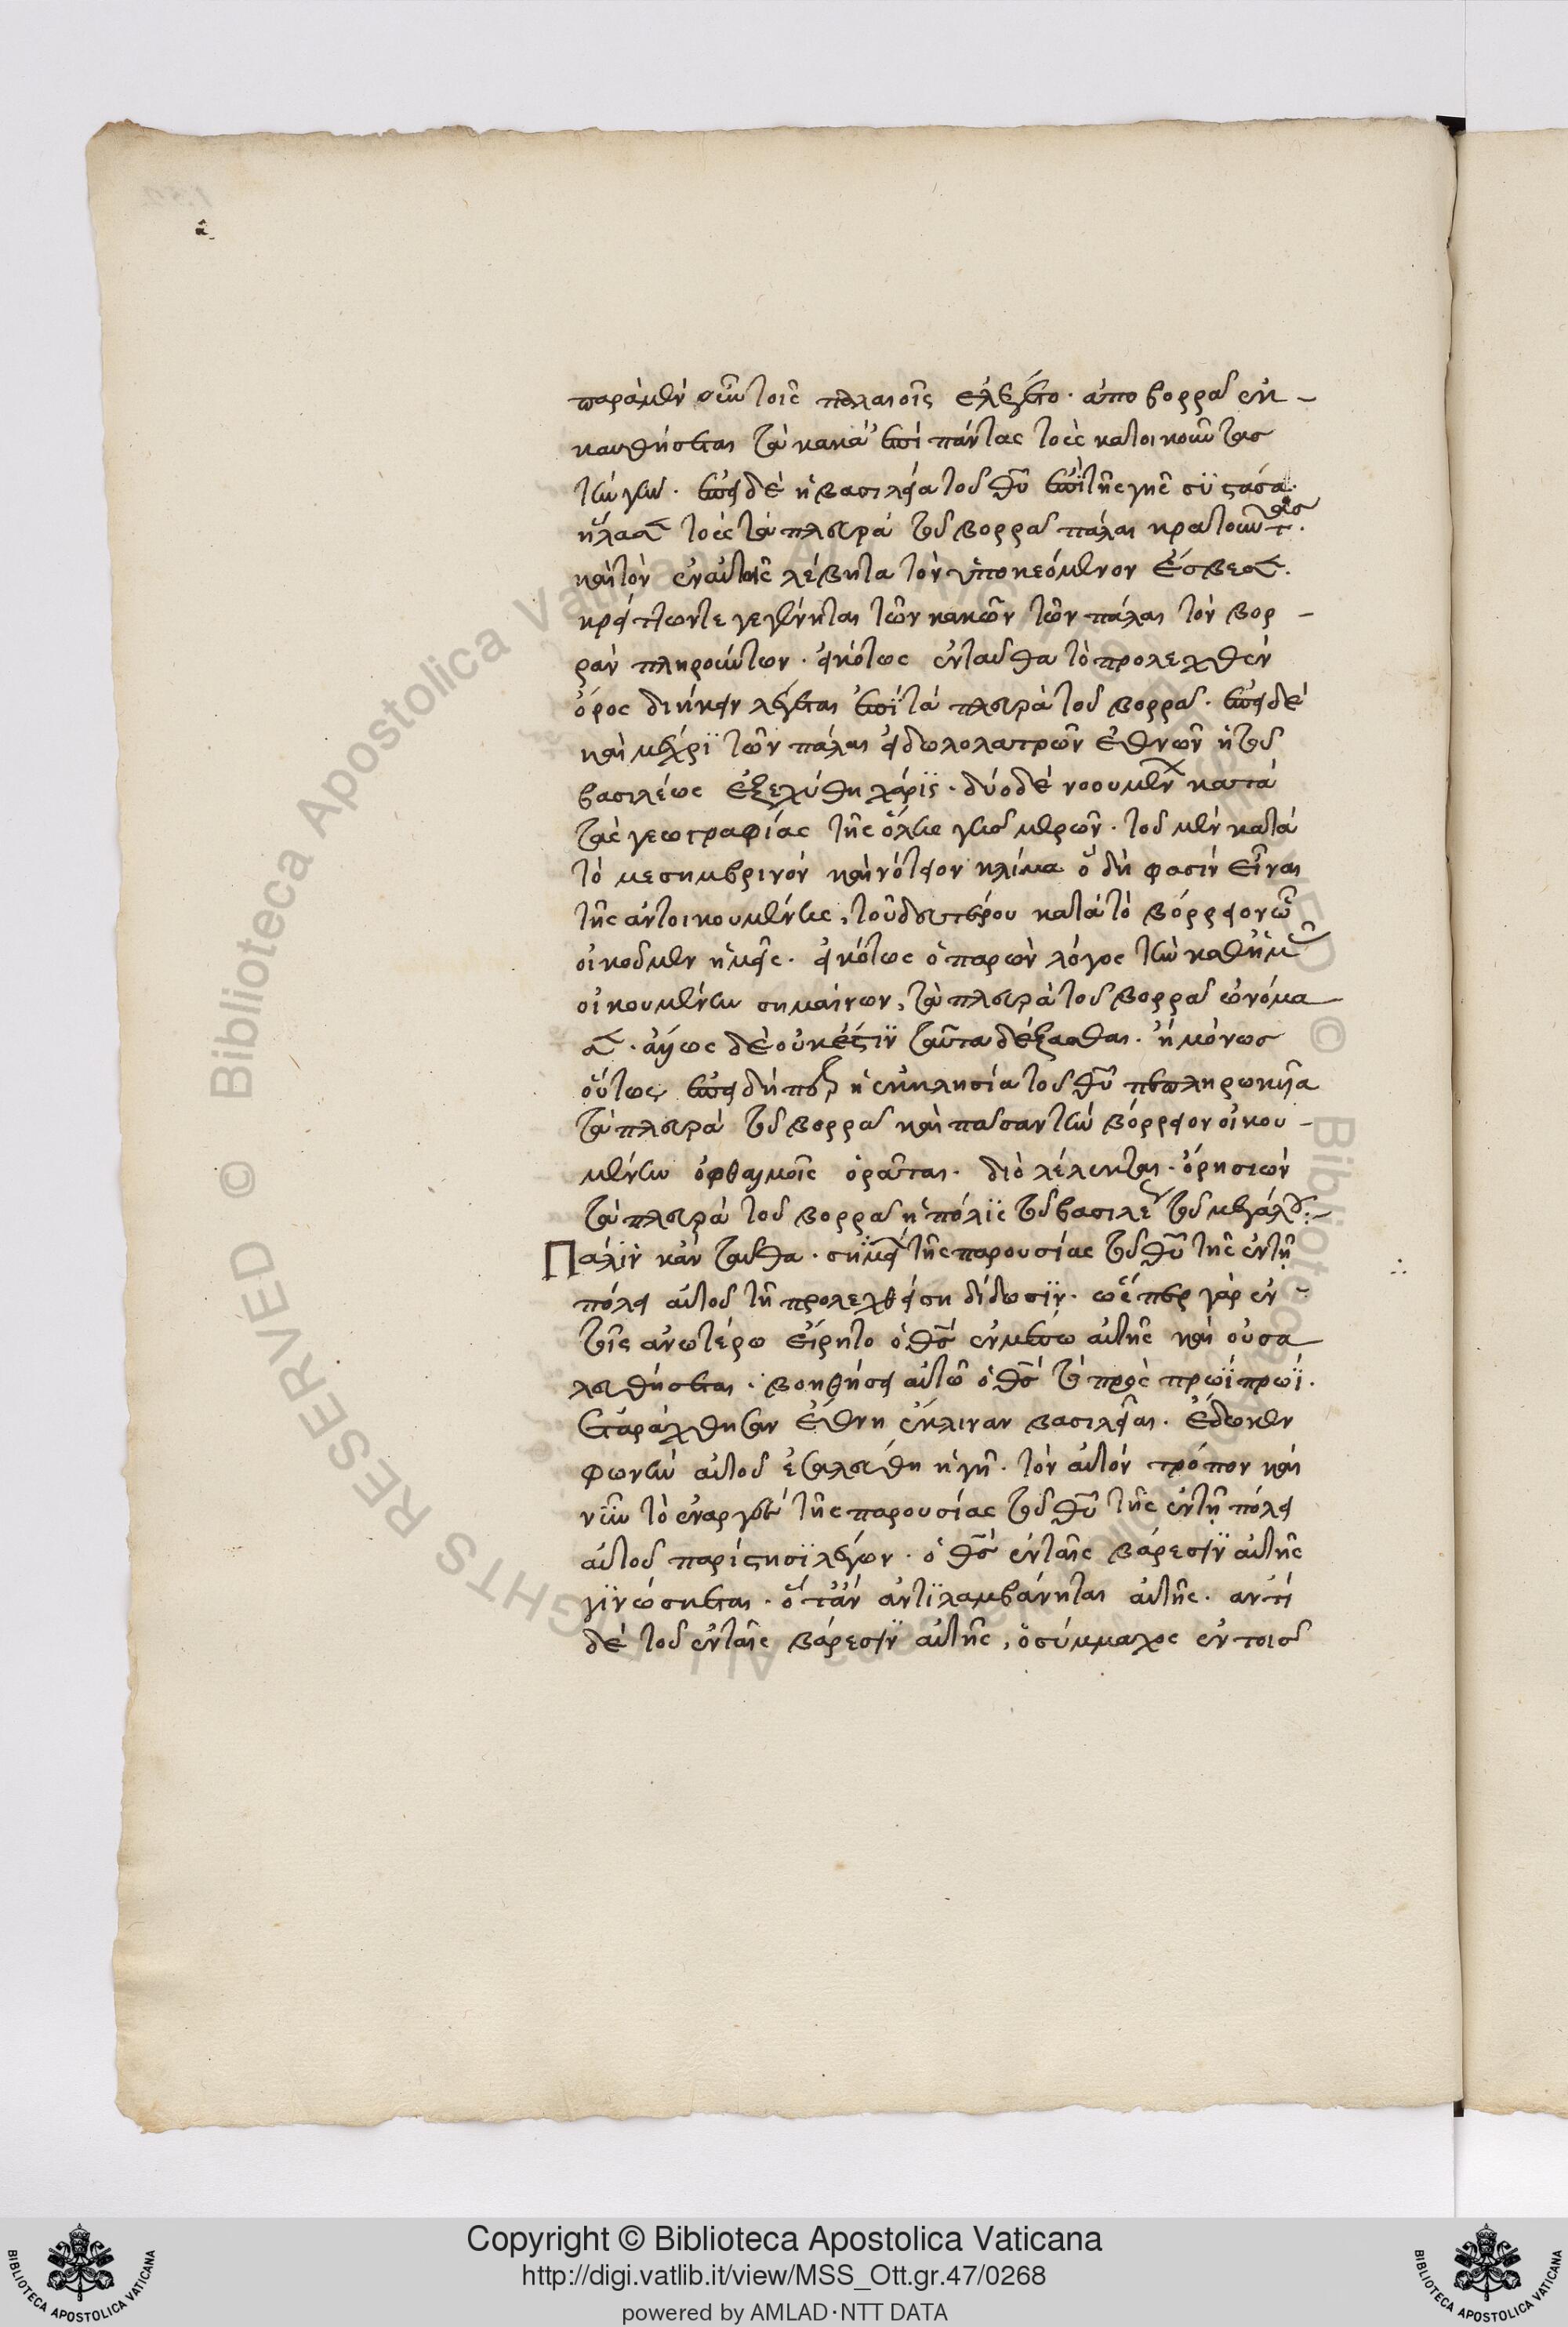 α
παρὰ μὲν οὖν τοῖς παλαιοῖς ἐλέγετο· ἀπο βορρᾶ ἐκ-
καυθήσεται τὰ κακὰ ἐπὶ πάντας τοὺς κατοικοῦντας
τὴν γῆν· ἐπεὶ δὲ ἡ βασιλεία τοῦ θυ ἐπὶ τῆς γῆς συστᾶσα
ἤλασε τοὺς τὰ πλευρὰ τοῦ βορρᾶ πάλαι κρατοῦντας·
καὶ τὸν ἐν αὐτοῖς λέβητα τὸν ὑποκεόμενον ἔσβεσε·
κρείττων τε γεγένηται τῶν κακῶν τῶν πάλαι τὸν βορ-
ρᾶν πληρούντων· εἰκότως ἐνταῦθα τὸ προλεχθὲν
ὄρος διήκειν λέγεται ἐπὶ τὰ πλευρὰ τοῦ βορρᾶ· ἐπεὶ δὲ
καὶ μέχρι τῶν πάλαι εἰδωλολατρῶν ἐθνῶν ἡ τοῦ
βασιλέως ἐξεχύθη χάρις· δύο δὲ νοουμένων κατὰ
τὰς γεωγραφίας τῆς ὅλης γῆς μερῶν· τοῦ μὲν κατὰ
τὸ μεσημβρινὸν καὶ νότειον κλίμα ὃ δή φασιν εἶναι
τῆς ἀντοικουμένης, τοῦ δευτέρου κατὰ τὸ βόρρειον ὃ
οἰκοῦμεν ἡμεῖς· εἰκότως ὁ παρὼν λόγος τὴν καθ' ἡμᾶς
οἰκουμένην σημαίνων, τὰ πλευρὰ τοῦ βορρᾶ ὠνόμα
σε· ἄλλως δὲ οὐκ ἔστιν ταῦτα δέξασθαι· ἢ μόνως
οὕτως ἐπεὶ δήπερ ἡ ἐκκλησία τοῦ θυ πεπληρωκυῖα
τὰ πλευρὰ τοῦ βορρᾶ καὶ πᾶσαν τὴν βόρρειον οἰκου-
μένην ὀφθαλμοῖς ὁρᾶται· διὸ λέλεκται· ὄρη σιὼν
τὰ πλευρὰ τοῦ βορρᾶ ἡ πόλις τοῦ βασιλέως τοῦ μεγάλου:-
Πάλιν κἀνταῦθα· σημεῖα τῆς παρουσίας τοῦ θυ τῆς ἐν τῇ
πόλει αὐτοῦ τῇ προλεχθείσῃ δίδωσιν· ὥσπερ γὰρ ἐν
τοῖς ἀνωτέρω εἴρητο ὁ θς ἐν μέσω αὐτῆς καὶ οὐ σα
λευθήσεται· βοηθήσει αὐτῶ ὁ θς τὸ πρὸς πρωῒ πρωΐ·
ἐταράχθησαν ἔθνη ἔκλιναν βασιλεῖαι· ἔδωκεν
φωνὴν αὐτοῦ ἐσαλεύθη ἡ γῆ· τὸν αὐτὸν τρόπον καὶ
νῦν τὸ ἐναργὲς τῆς παρουσίας τοῦ θυ τῆς ἐν τῇ πόλει
αὐτοῦ παρίστησι λέγων· ὁ θς ἐν ταῖς βάρεσιν αὐτῆς
γινώσκεται· ὅτἂν ἀντιλαμβάνηται αὐτῆς· ἀντὶ
δὲ τοῦ ἐν ταῖς βάρεσιν αὐτῆς, ὁ σύμμαχος ἐν τοῖς
Copyright © Biblioteca Apostolica Vaticana
http://digi.vatlib.it/view/MSS_Ott.gr.47/0268
powered by AMLAD·NTT DATA